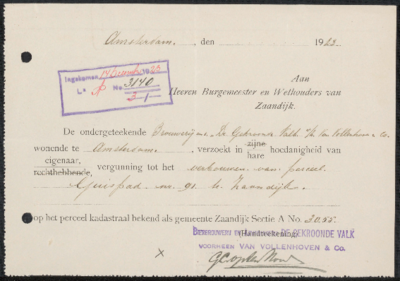 Amsterdam, den 1923.
Ingekomen 1923
La No. 3140
Aan
Heeren Burgemeester en Wethouders van
Zaandijk.
De ondergeteekende Brouwerij De Gekroonde Valk v/h van Vollenhoven & Co
wonende te Amsterdam, verzoekt in zijne hoedanigheid van
hare
eigenaar,
rechthebbende, vergunning tot het verbouwen van perceel
Guispad no. 91 te Zaandijk
op het perceel kadastraal bekend als gemeente Zaandijk Sectie A No. 3055.
(Handteekening)
DE GEKROONDE VALK
VOORHEEN VAN VOLLENHOVEN & Co.
×